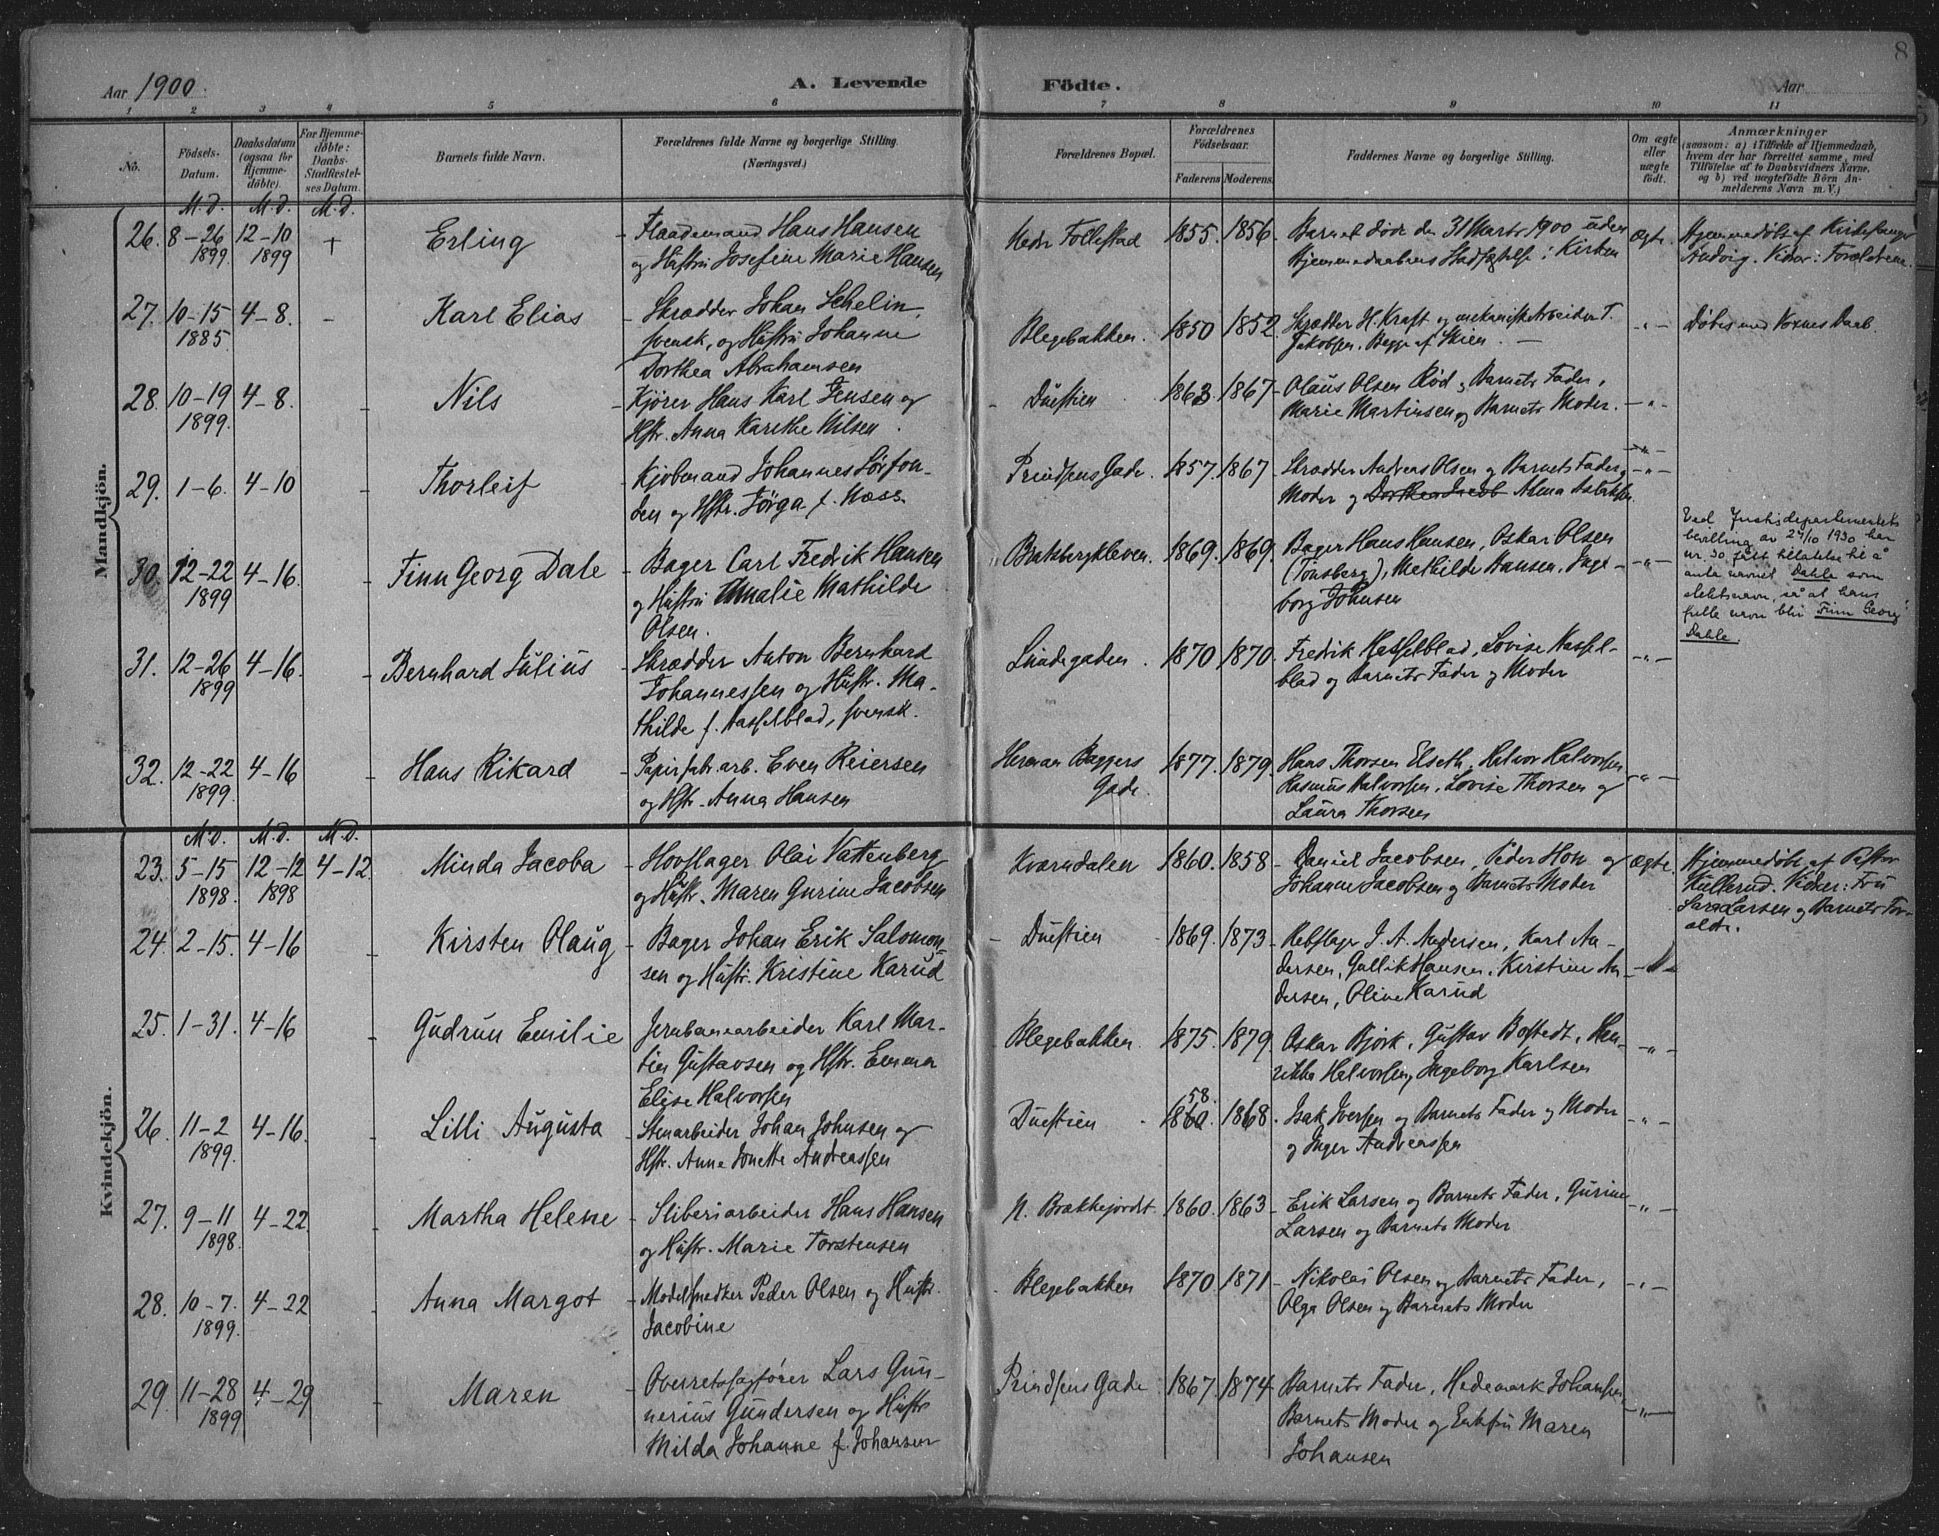 8
Aar 1900. A. Levende Födte. Aar
1 2 3 4 5 6 7 8 9 10 11
No.
Födsels-Datum.
Daabsdatum (ogsaa for Hjemme-döbte).
For Hjemme-döbte: Daabs-Stadfæstel-ses Datum.
Barnets fulde Navn.
Forældrenes fulde Navne og borgerlige Stilling (Næringsvei.)
Forældrenes Bopæl.
Forældrenes Födselsaar.
Faderens Moderens.
Faddernes Navne og borgerlige Stilling.
Om ægte eller uægte födt.
Anmærkninger
(saasom: a) i Tilfælde af Hjemmedaab,
hvem der har forrettet samme, med
Tilföielse af to Daabsvidners Navne.
og b) ved uægtefödte Börn An-
melderens Navn m. V.)
Mandkjön.
M. d. M. d. M. d.
26. 8-26 1899 12-10 1899 + Erling
Flaademand Hans Hansen
og Hustru Josefine Marie Hansen
Nedre Follestad 1855. 1856.
Barnet døde den 31 Marts 1900 uden
Hjemmedaabens Stadfæstelse i Kirken
Ægte.
Hjemmedøbt af Kirkesanger
Andvig. Vidner: Forældrene.
27. 10-15 1885. 4-8. - Karl Elias
Skrædder Johan Schelin,
svensk, og Hustru Johanne
Dorthea Abrahamsen
Blegebakken. 1850 1852.
Skrædder H. Kraft og mekanisk Arbeider T.
Jakobsen. Begge af Skien.
-"-
Døbes med Voxnes Daab.
28. 10-19 1899. 4-8. - Nils
Kjører Hans Karl Jensen og
Hstr. Anna Karethe Nilsen.
Duestien 1863 1867
Olaus Olsen Rød og Barnets Fader,
Marie Martinsen og Barnets Moder.
-"-
29. 1-6. 4-10 - Thorleif
Kjøbmand Johannes Sørfon-
den og Hstr. Jørga f. Næss.
Prindsens Gade. 1857. 1867
Skrædder Andreas Olsen og Barnets Fader,
Moder og Dorthea Jacob Alma
-"-
30. 12-22 1899 4-16. - Finn Georg Dale
Bager Carl Fredrik Hansen
og Hustru Amalie Mathilde
Olsen.
Bratsbergkleven. 1869. 1869.
Bager Hans Hansen, Oskar Olsen
(Tønsberg), Mathilde Hansen, Inge-
borg Johnsen
-"-
Ved Justisdepartementets
bevilling av 24/10 1930 har
nr. 30 fått tillatelse til å
anta navnet Dahle som
slektsnavn, så at hans
fulle navn blir Finn Georg
Dahle.
31. 12-26 1899 4-16. - Bernhard Julius
Skrædder Anton Bernhard
Johannessen og Hustr. Ma-
thilde f. Hasselblad, svensk.
Lindegaden. 1870 1870.
Fredrik Hasselblad, Lovise Hassel-
blad og Barnets Fader og Moder
-"-
32. 12-22 1899. 4-16 - Hans Rikard
Papirfabr.arb. Even Reiersen
og Hstr. Anna Hansen
Herman Baggers
Gade. 1877. 1879.
Hans Thorsen Elseth, Halvor Halvorsen
Rasmus Halvorsen, Lovise Thorsen og
Laura Thorsen
-"-
Kvindekjön.
M. d. M. d. M. d.
23. 5-15 1898. 12-12 1898 4-12. Minda Jacoba
Hovslager Olai Vattenberg
og Hustr. Maren Gurine Jacobsen
Kværndalen 1860. 1858
Daniel Jacobsen, Peder Hom og
Johanne Jacobsen og Barnets Moder
Ægte.
Hjemmedøbt af Pastor
Kullerud. Vidner: Fru
Sara Larsen og Barnets For-
ældre.
24. 2-15. 4-16 - Kirsten Olaug
Bager Johan Erik Salomon-
sen og Hustr. Kristine Karud
Duestien 1869. 1873
Rebslager J. A. Andersen, Karl An-
dersen, Gullik Hansen, Kirstine An-
dersen, Oline Karud
25. 1-31. 4-16 - Gudrun Emilie
Jernbanearbeider Karl Mar-
tin Gustavsen og Hstr. Emma
Elise Halvorsen
Blegebakken. 1875. 1879
Oskar Bjørk, Gustav Bostedt, Hen-
rikke Halvorsen, Ingeborg Karlsen
-"-
26. 11-2 1899. 4-16. - Lilli Augusta
Stenarbeider Johan Johnsen og
Hstr. Anne Jonette Andreassen
Duestien 58. 1860. 1868.
Isak Iversen og Barnets Fader og Moder
og Inger Andreassen
-"-
27. 9-11 1898. 4-22 - Martha Helene
Sliberiarbeider Hans Hansen
og Hustr. Marie Torstensen
N. Brækkejordet. 1860. 1863
Erik Larsen og Barnets Fader, Gurine
Larsen og Barnets Moder
-"-
28. 10-7. 1899. 4-22 - Anna Margot
Modelsnedker Peder Olsen og Hustr.
Jacobine
Blegebakken 1870 1871
Nikolai Olsen og Barnets Fader,
Olga Olsen og Barnets Moder
-"-
29. 11-28 1899 4-29 - Maren
Overretssagfører Lars Gun-
nerius Gundersen og Hustr.
Milda Johanne f. Johansen
Prindsens Gade 1867. 1874
Barnets Fader, Hedemark Johansen,
Barnets Moder og Enkefru Maren
Johansen
-"-